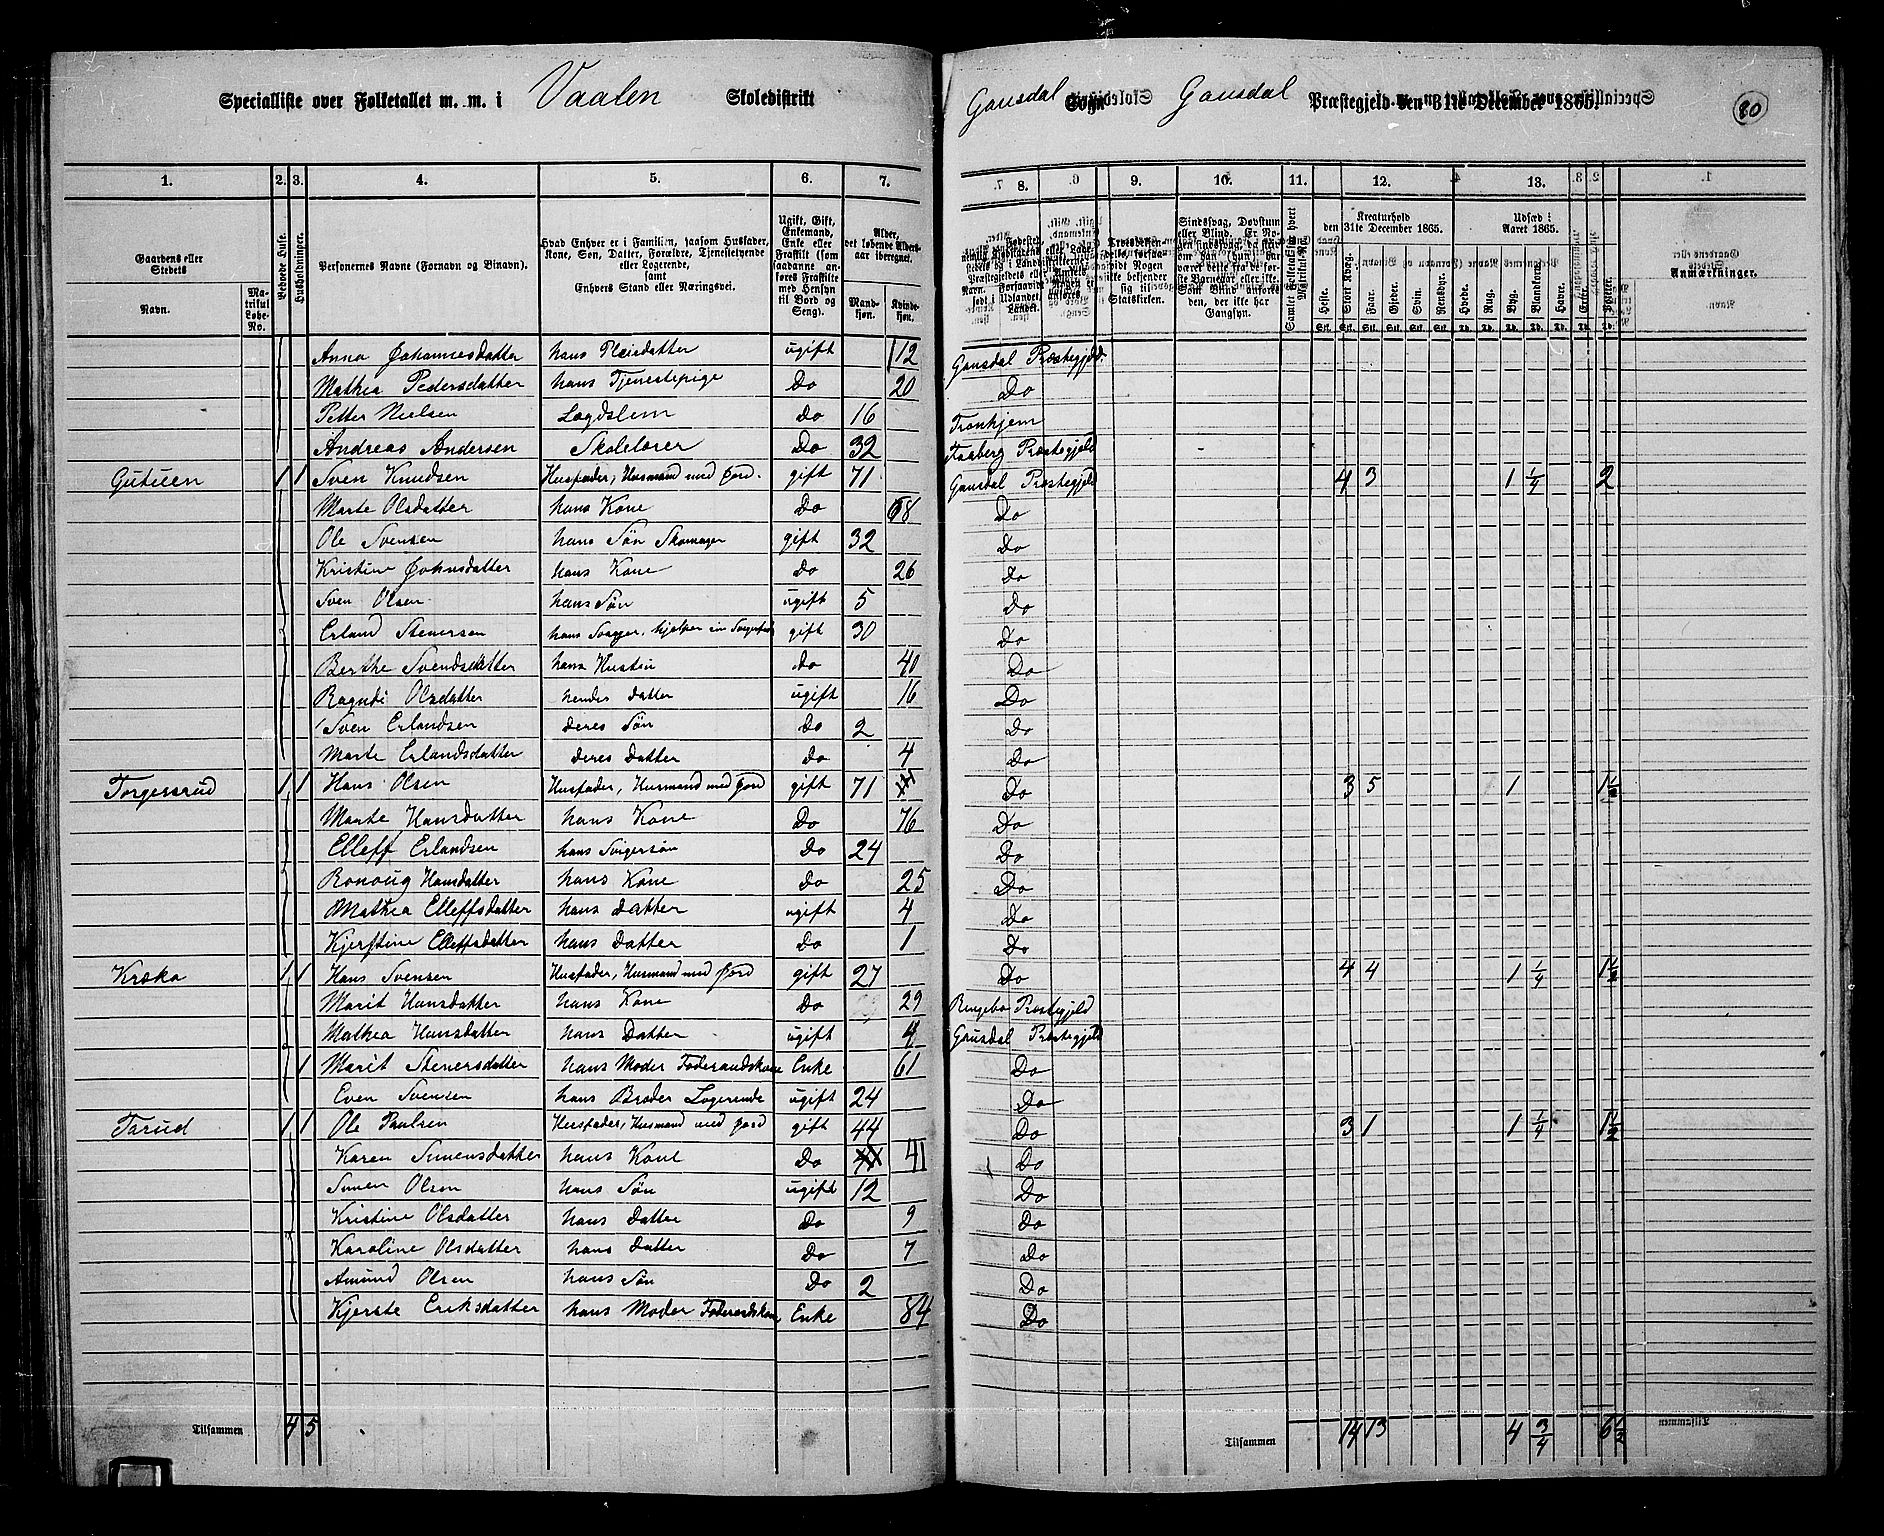 Specialliste over Folketallet m. m. i Vaalen Skoledistrikt
Gausdal Sogn Gausdal Præstegjeld den 31te December 1865.
80
1. 2. 3. 4. 5. 6. 7.
8. 9. 10. 11. 12. 13.
Gaardens eller Stedets
Navn.
Matrikul Løbe-No.
Beboede Huse.
Husholdninger.
Personernes Navne (Fornavn og Binavn).
Hvad Enhver er i Familien, saasom Husfader, Kone, Søn, Datter, Forældre, Tjenestetyende eller Logerende, samt Enhvers Stand eller Næringsvei.
Ugift, Gift, Enkemand, Enke eller Fraskilt (som saadanne anføres Fraskilte med Hensyn til Bord og Seng).
Alder, det løbende Aldersaar iberegnet.
Mandkøn. Kvindekøn.
Kreaturhold den 31te December 1865.
Udsæd i Aaret 1865.
Anmærkninger.
Heste. Stort Kvæg. Faar. Gjeder. Svin. Rensdyr. Hvede. Rug. Byg. Blandkorn. Havre. Erter. Poteter.
Anna Johannesdatter hans Pleiedatter ugift 12 Gausdal Præstegjeld.
Mathea Pedersdatter hans Tjenestepige Do 20 Do
Petter Nielsen Lægdslem Do 16 Tronhjem
Andreas Andersen Skolelærer Do 32 Faaberg Præstegjeld
Gutuen 1 1 Sven Knudsen Husfader, Husmand med Jord. gift 71 Gausdal Præstegjeld 4 3 1 1/4 2
Marte Olsdatter hans Kone Do 68 Do
Ole Svensen hans Søn Skomager gift 32 Do
Kristine Johnsdatter hans Kone Do 26 Do
Sven Olsen hans Søn ugift 5 Do
Erland Stenersen hans Svoger, hjelper sin gift 30 Do
Berthe Svendsdatter hans Hustru Do 40 Do
Ragndi Olsdatter hendes Datter ugift 16 Do
Sven Erlandsen deres Søn Do 2 Do
Marte Erlandsdatter deres Datter Do 4 Do
Torgersrud 1 1 Hans Olsen Husfader, Husmand med Jord gift 71 Do 3 5 1 1 1/2
Marte Hansdatter hans Kone Do 76 Do
Elleff Erlandsen hans Svigersøn Do 24 Do
Ronoug Hansdatter hans Kone Do 25 Do
Mathea Elleffsdatter hans Datter ugift 4 Do
Kjerstine Elleffsdatter hans Datter Do 1 Do
Kræka 1 1 Hans Svensen Husfader, Husmand med Jord gift 27 Do 4 4 1 1/4 1 1/2
Marit Hansdatter hans Kone Do 29 Ringebo Præstegjeld
Mathea Hansdatter hans Datter ugift 4 Gausdal Præstegjeld
1 Marit Stenersdatter hans Moder Føderaadskone Enke 61 Do
Even Svensen hans Broder Logerende ugift 24 Do
Tarud 1 1 Ole Paulsen Husfader, Husmand med Jord gift 44 Do 3 1 1 1/4 1 1/2
Karen Simensdatter hans Kone Do 41 Do
Simen Olsen hans Søn ugift 12 Do
Kristine Olsdatter hans Datter Do 9 Do
Karoline Olsdatter hans Datter Do 7 Do
Amund Olsen hans Søn Do 2 Do
Kjerste Eriksdatter hans Moder Føderaadskone Enke 84 Do
Tilsammen 4 5
Tilsammen 14 13 4 3/4 6 1/2